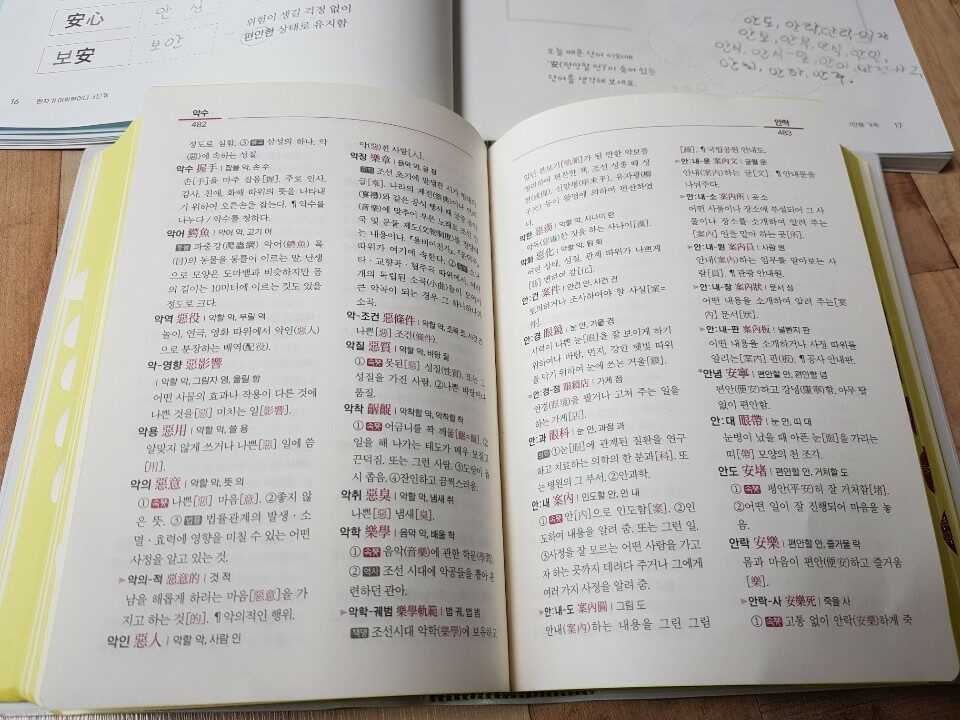 安心
안심
위험이 생길 걱정 없이
편안한 상태로 유지함
보安
보안
16 한자가 어휘력이다 3단계
오늘 배운 단어 이외에
安(편안할 안)가 숨어 있는
단어를 생각해 보세요.
안도, 안락, 안락의자
17
악수
482
정도로 심함. ③ 불교 삼성의 하나. 악
(惡)에 속하는 성질.
악수 握手 | 잡을 악, 손 수
손[手]을 마주 잡음[握]. 주로 인사,
감사, 친애, 화해 따위의 뜻을 나타내
기 위하여 오른손을 잡는다. ¶ 악수를
나누다 / 악수를 청하다.
악어 鰐魚 | 악어 악, 고기 어
동물 파충강(爬蟲綱) 악어(鰐魚) 목
(目)의 동물을 통틀어 이르는 말. 난생
으로 모양은 도마뱀과 비슷하지만 몸
의 길이는 10미터에 이르는 것도 있을
정도로 크다.
악역 惡役 | 악할 악, 부릴 역
놀이, 연극, 영화 따위에서 악인(惡人)
으로 분장하는 배역(配役).
악-영향 惡影響
| 악할 악, 그림자 영, 울릴 향
어떤 사물의 효과나 작용이 다른 것에
나쁜 것을[惡] 미치는 일[影響].
악용 惡用 | 악할 악, 쓸 용
알맞지 않게 쓰거나 나쁜[惡] 일에 씀
[用].
악의 惡意 | 악할 악, 뜻 의
① 속뜻 나쁜[惡] 마음[意]. ②좋지 않
은 뜻. ③ 법률 법률관계의 발생·소
멸·효력에 영향을 미칠 수 있는 어떤
사정을 알고 있는 것.
▸악의-적 惡意的 | 것 적
남을 해롭게 하려는 마음[惡意]을 가
지고 하는 것[的]. ¶ 악의적인 행위.
악인 惡人 | 악할 악, 사람 인
악(惡)한 사람[人].
악장 樂章 | 음악 악, 글 장
음악 조선 초기에 발생한 시가 형태의
글[章]. 나라의 제전(祭典)이나 연례
(宴禮)와 같은 공식 행사 때 궁중 음악
(音樂)에 맞추어 부른 노래로 조선 건
국 및 문물 제도(文物制度)를 찬양하
는 내용이나.
따위가 여기에 속한다.
타·교향곡·협주곡 따위에서,
개의 독립된 소곡(小曲)들이 모여서
큰 악곡이 되는 경우 그 하나하나의
소곡.
악-조건 惡條件 | 악할 악, 조목 조, 사건 건
나쁜[惡] 조건(條件).
악질 惡質 | 악할 악, 바탕 질
① 속뜻 못된[惡] 성질(性質). 또는 그
성질을 가진 사람. ②나쁜 바탕이나
품질.
악착 齷齪 | 악착할 악, 악착할 착
① 속뜻 어금니를 꽉 깨묾[齷=齪]. ②
일을 해 나가는 태도가 매우 모질고
끈덕짐. 또는 그런 사람. ③도량이 몹
시 좁음. ④잔인하고 끔찍스러움.
악취 惡臭 | 악할 악, 냄새 취
나쁜[惡] 냄새[臭].
악학 樂學 | 음악 악, 배울 학
① 속뜻 음악(音樂)에 관한 학문(學問).
② 역사 조선 시대에 악공들을 뽑아 훈
련하던 관아.
▸악학-궤범 樂學軌範 | 법 궤, 법 범
책명 조선시대 악학(樂學)에 보유하고
안락
483
있던 본보기[軌範]가 될 만한 악보를
정리하여 편찬한 책. 조선 성종 때 성
현(成俔), 신말평(申末平), 유자광(柳
子光) 등이 왕명에 의하여 편찬하였
다.
악한 惡漢 | 악할 악, 사나이 한
악독(惡毒)한 짓을 하는 사나이[漢].
악화 惡化 | 악할 악, 될 화
어떤 상태, 성질, 관계 따위가 나쁘게
[惡] 변하여 감[化].
안:건 案件 | 안건 안, 사건 건
토의하거나 조사하여야 할 사실[案=
件].
안:경 眼鏡 | 눈 안, 거울 경
시력이 나쁜 눈[眼]을 잘 보이게 하기
위하여나 바람, 먼지, 강한 햇빛 따위
를 막기 위하여 눈에 쓰는 거울[鏡].
▸안:경-점 眼鏡店 | 가게 점
안경(眼鏡)을 팔거나 고쳐 주는 일을
하는 가게[店].
안:과 眼科 | 눈 안, 과정 과
의학 ①눈[眼]에 관계된 질환을 연구
하고 치료하는 의학의 한 분과[科]. 또
는 병원의 그 부서. ②안과학.
안:내 案內 | 인도할 안, 안 내
① 속뜻 안[內]으로 인도함[案]. ②인
도하여 내용을 알려 줌. 또는 그런 일.
③사정을 잘 모르는 어떤 사람을 가고
자 하는 곳까지 데려다 주거나 그에게
여러 가지 사정을 알려 줌.
▸안:내-도 案內圖 | 그림 도
안내(案內)하는 내용을 그린 그림
[圖]. ¶ 국립공원 안내도.
▸안:내-문 案內文 | 글월 문
안내(案內)하는 글[文]. ¶ 안내문을
나눠주다.
▸안:내-소 案內所 | 곳 소
어떤 사물이나 장소에 부설되어 그 사
물이나 장소를 소개하여 알려 주는
[案內] 일을 맡아 하는 곳[所].
▸안:내-원 案內員 | 사람 원
안내(案內)하는 임무를 맡아보는 사
람[員]. ¶ 관광 안내원.
▸안:내-장 案內狀 | 문서 장
어떤 내용을 소개하여 알려 주는[案
內] 문서[狀].
▸안:내-판 案內板 | 널빤지 판
어떤 내용을 소개하거나 사정 따위를
알리는[案內] 판(板). ¶ 공사 안내판
*안녕 安寧 | 편안할 안, 편안할 녕
편안(便安)하고 강녕(康寧)함. 아무 탈
없이 편안함.
안:대 眼帶 | 눈 안, 띠 대
눈병이 났을 때 아픈 눈[眼]을 가리는
띠[帶] 모양의 천 조각.
안도 安堵 | 편안할 안, 거처할 도
① 속뜻 평안(平安)히 잘 거처함[堵].
②어떤 일이 잘 진행되어 마음을 놓
음.
안락 安樂 | 편안할 안, 즐거울 락
몸과 마음이 편안(便安)하고 즐거움
[樂].
▸안락-사 安樂死 | 죽을 사
① 속뜻 고통 없이 안락(安樂)하게 죽